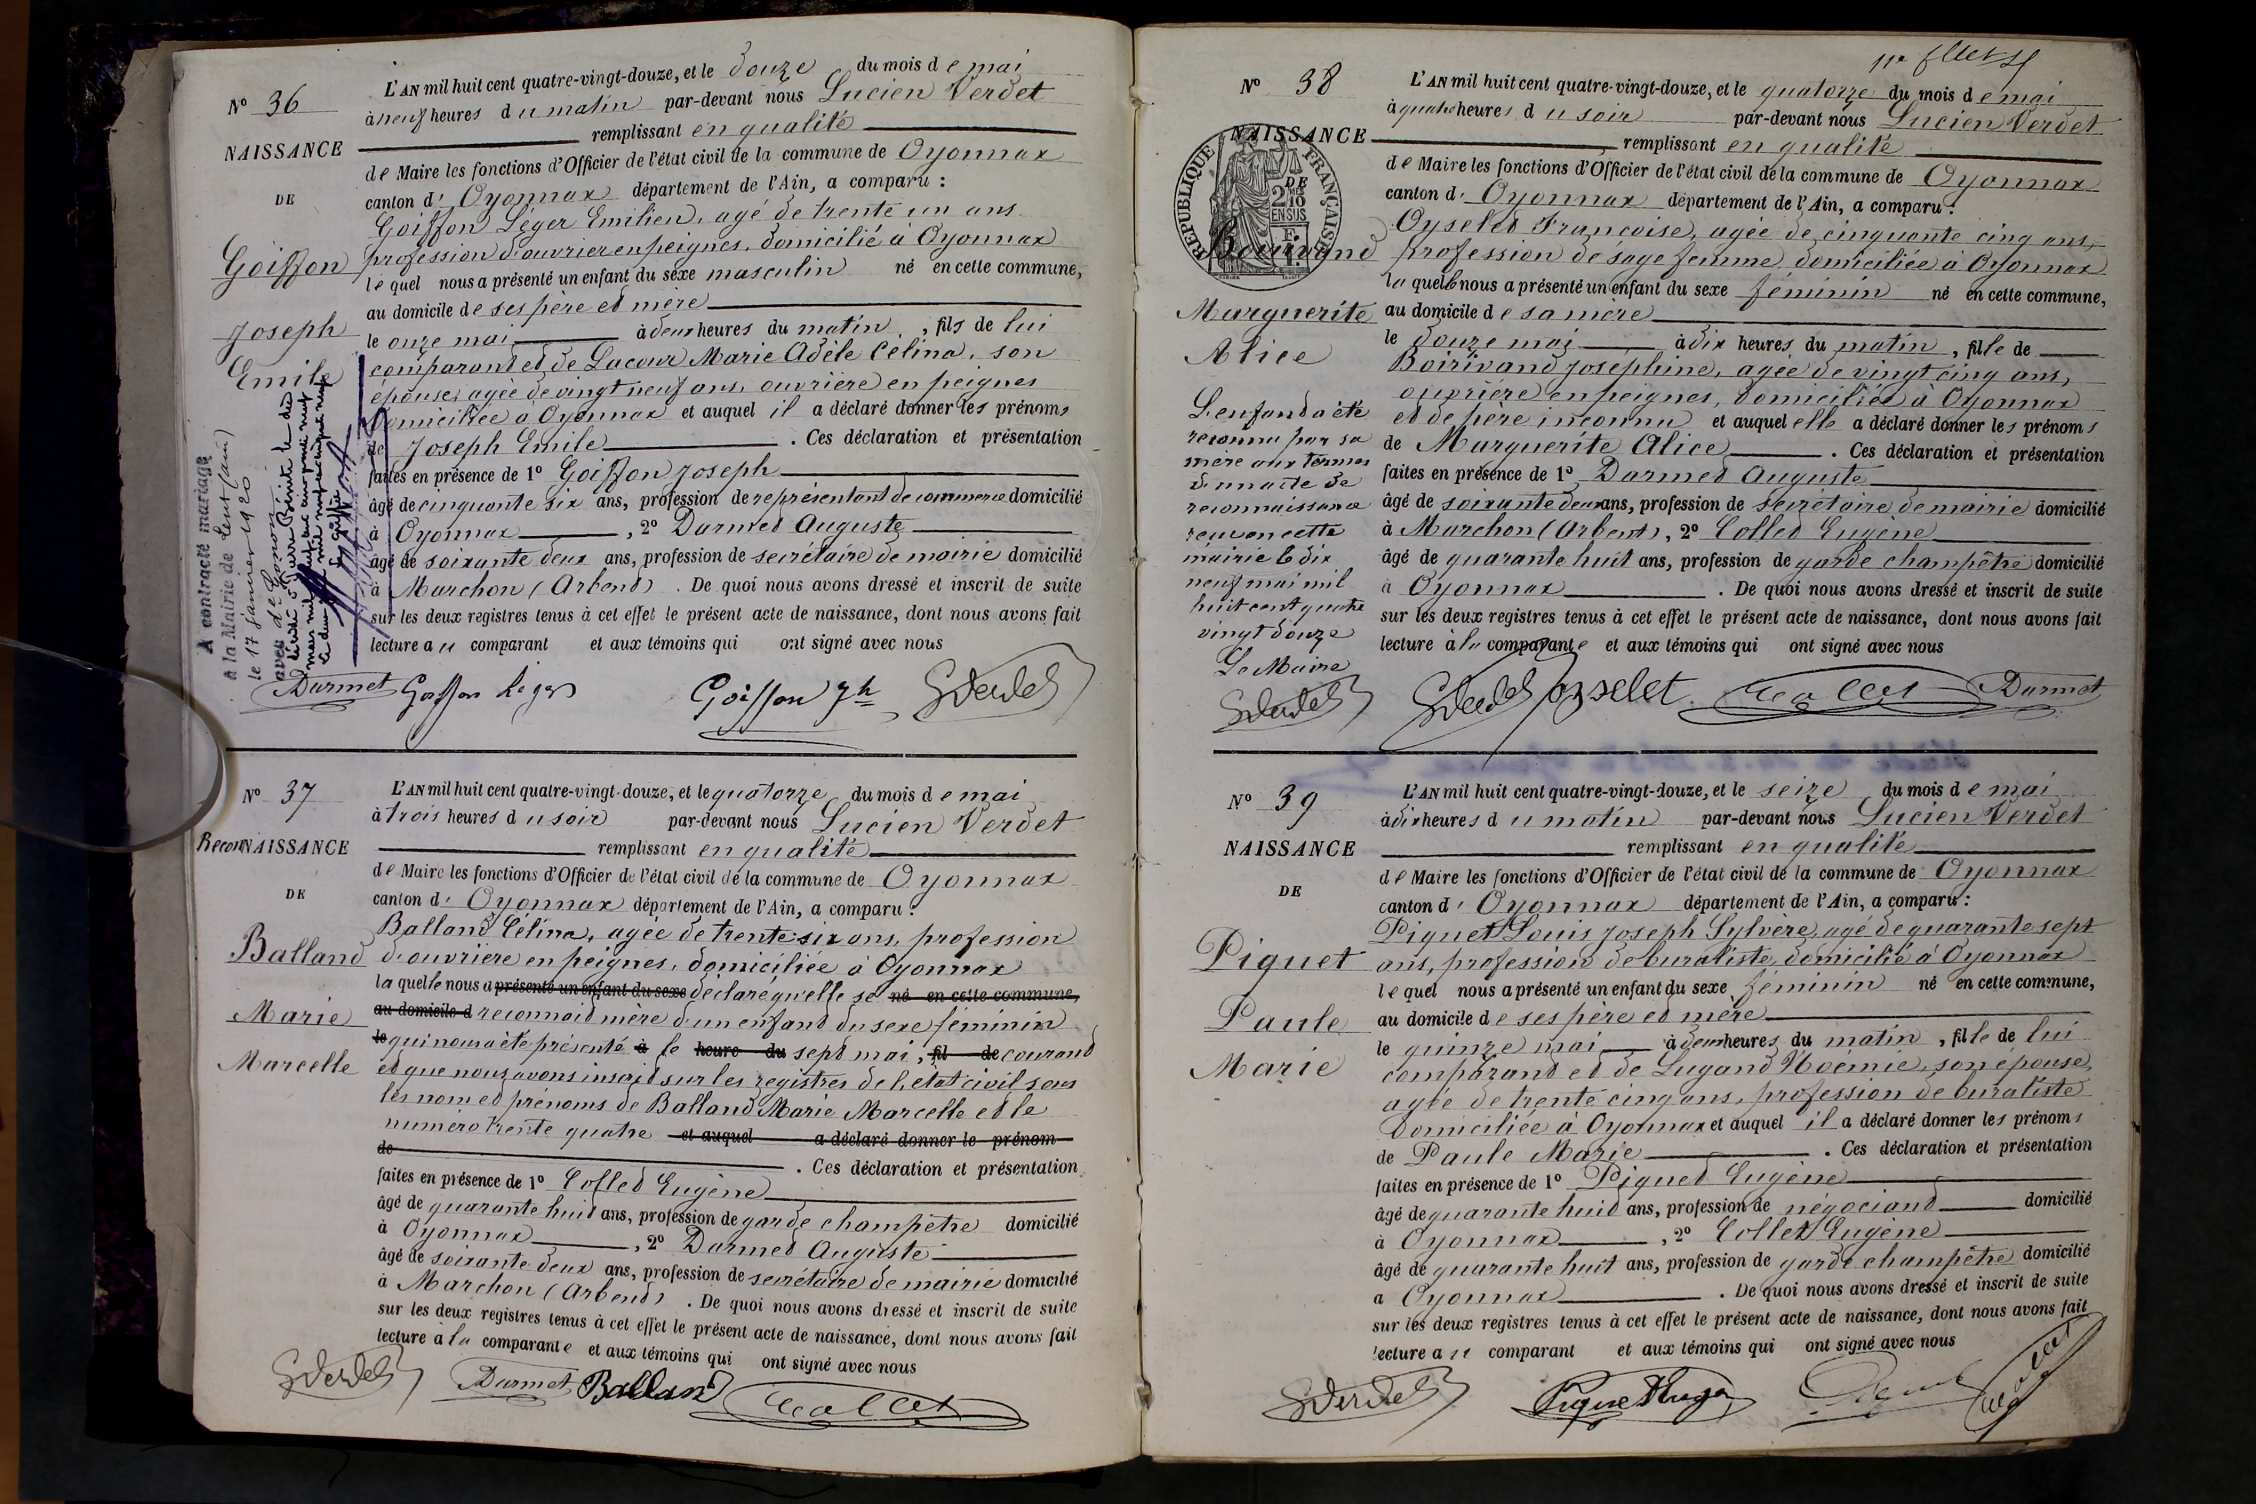 N° 36
NAISSANCE
DE
Goiffon
Joseph
Emile
A contracté mariage
à la Mairie de
le 17 janvier 1920
L'AN mil huit cent quatre-vingt-douze, et le douze du mois de mai
à neuf heures du matin par-devant nous Lucien Verdet
remplissant en qualité
de Maire les fonctions d'Officier de l'état civil de la commune de Oyonnax
canton d' Oyonnax département de l'Ain, a comparu :
Goiffon Léger Emilien, agé de trente un ans
profession d'ouvrier en peignes, domicilié à Oyonnax
lequel nous a présenté un enfant du sexe masculin né en cette commune,
au domicile de ses père et mère
le onze mai à deux heures du matin, fils de lui
comparant et de Lacour Marie Adèle Célina, son
épouse, agée de vingt neuf ans, ouvrière en peignes
domiciliée à Oyonnax et auquel il a déclaré donner les prénoms
de Joseph Emile . Ces déclaration et présentation
faites en présence de 1° Goiffon Joseph
âgé de cinquante six ans, profession de représentant de commerce domicilié
à Oyonnax , 2° Darmet Auguste
âgé de soixante deux ans, profession de secrétaire de mairie domicilié
à Marchon (Arbent) . De quoi nous avons dressé et inscrit de suite
sur les deux registres tenus à cet effet le présent acte de naissance, dont nous avons fait
lecture au comparant et aux témoins qui ont signé avec nous
Darmet Goiffon Léger Goiffon Jh LVerdet
N° 37
Recon NAISSANCE
DE
Balland
Marie
Marcelle
L'AN mil huit cent quatre-vingt-douze, et le quatorze du mois de mai
à trois heures du soir par-devant nous Lucien Verdet
remplissant en qualité
de Maire les fonctions d'Officier de l'état civil de la commune de Oyonnax
canton d' Oyonnax département de l'Ain, a comparu :
Balland Célina, agée de trente six ans, profession
d'ouvrière en peignes, domiciliée à Oyonnax
laquelle nous a présenté un enfant du sexe déclaré qu'elle se né en cette commune,
au domicile d reconnait mère d'un enfant du sexe féminin
le qui nous a été présenté à le heure du sept mai, fil de courant
et que nous avons inscrit sur les registres de l'état civil sous
les nom et prénoms de Balland Marie Marcelle et le
numéro trente quatre et auquel a déclaré donner le prénom
de . Ces déclaration et présentation
faites en présence de 1° Collet Eugène
âgé de quarante huit ans, profession de garde champêtre domicilié
à Oyonnax , 2° Darmet Auguste
âgé de soixante deux ans, profession de secrétaire de mairie domicilié
à Marchon (Arbent) . De quoi nous avons dressé et inscrit de suite
sur les deux registres tenus à cet effet le présent acte de naissance, dont nous avons fait
lecture à la comparante et aux témoins qui ont signé avec nous
LVerdet Darmet Balland Collet
N° 38
NAISSANCE
DE
RÉPUBLIQUE FRANÇAISE
2/10 EN SUS
Boirivand
Marguerite
Alice
L'enfant a été
reconnu par sa
mère aux termes
d'un acte de
reconnaissance
reçu en cette
mairie le dix
neuf mai mil
huit cent quatre
vingt douze
Le Maire
LVerdet
L'AN mil huit cent quatre-vingt-douze, et le quatorze du mois de mai
à quatre heures du soir par-devant nous Lucien Verdet
remplissant en qualité
de Maire les fonctions d'Officier de l'état civil de la commune de Oyonnax
canton d' Oyonnax département de l'Ain, a comparu :
Oyselet Françoise, agée de cinquante cinq ans,
profession de sage femme, domiciliée à Oyonnax
laquelle nous a présenté un enfant du sexe féminin né en cette commune,
au domicile de sa mère
le douze mai à dix heures du matin, fille de
Boirivand Joséphine, agée de vingt cinq ans,
ouvrière en peignes, domiciliée à Oyonnax
et de père inconnu et auquel elle a déclaré donner les prénoms
de Marguerite Alice . Ces déclaration et présentation
faites en présence de 1° Darmet Auguste
âgé de soixante deux ans, profession de secrétaire de mairie domicilié
à Marchon (Arbent), 2° Collet Eugène
âgé de quarante huit ans, profession de garde champêtre domicilié
à Oyonnax . De quoi nous avons dressé et inscrit de suite
sur les deux registres tenus à cet effet le présent acte de naissance, dont nous avons fait
lecture à la comparante et aux témoins qui ont signé avec nous
LVerdet Oyselet Collet Darmet
N° 39
NAISSANCE
DE
Piquet
Paule
Marie
L'AN mil huit cent quatre-vingt-douze, et le seize du mois de mai
à dix heures du matin par-devant nous Lucien Verdet
remplissant en qualité
de Maire les fonctions d'Officier de l'état civil de la commune de Oyonnax
canton d' Oyonnax département de l'Ain, a comparu :
Piquet Louis Joseph Sylvère, agé de quarante sept
ans, profession de buraliste, domicilié à Oyonnax
lequel nous a présenté un enfant du sexe féminin né en cette commune,
au domicile de ses père et mère
le quinze mai à deux heures du matin, fille de lui
comparant et de Lugand Noémie, son épouse,
agée de trente cinq ans, profession de buraliste
domiciliée à Oyonnax et auquel il a déclaré donner les prénoms
de Paule Marie . Ces déclaration et présentation
faites en présence de 1° Piquet Eugène
âgé de quarante huit ans, profession de négociant domicilié
à Oyonnax , 2° Collet Eugène
âgé de quarante huit ans, profession de garde champêtre domicilié
à Oyonnax . De quoi nous avons dressé et inscrit de suite
sur les deux registres tenus à cet effet le présent acte de naissance, dont nous avons fait
lecture au comparant et aux témoins qui ont signé avec nous
LVerdet